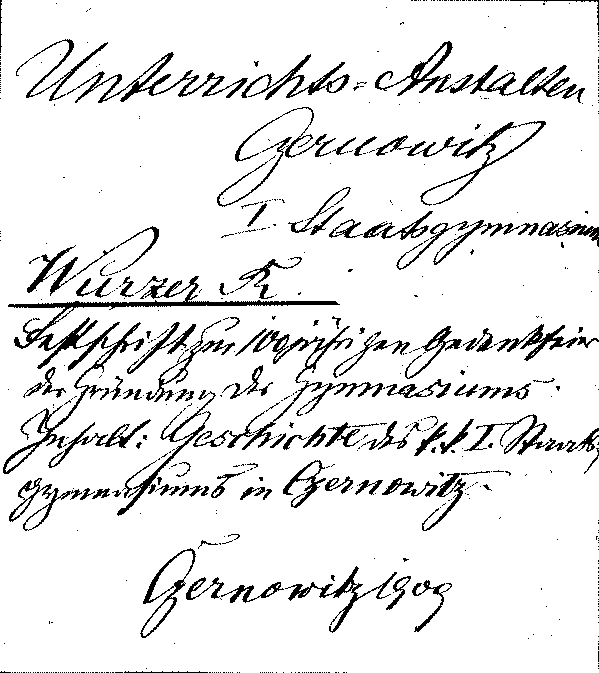 Unterrichts-Anstalten
Czernowitz
I Staatsgymnasium
Wurzer R.
Festschrift zur 100jährigen Gedenkfeier
der Gründung des Gymnasiums.
Inhalt: Geschichte des k.k. I. Staats-
gymnasiums in Czernowitz.
Czernowitz 1909